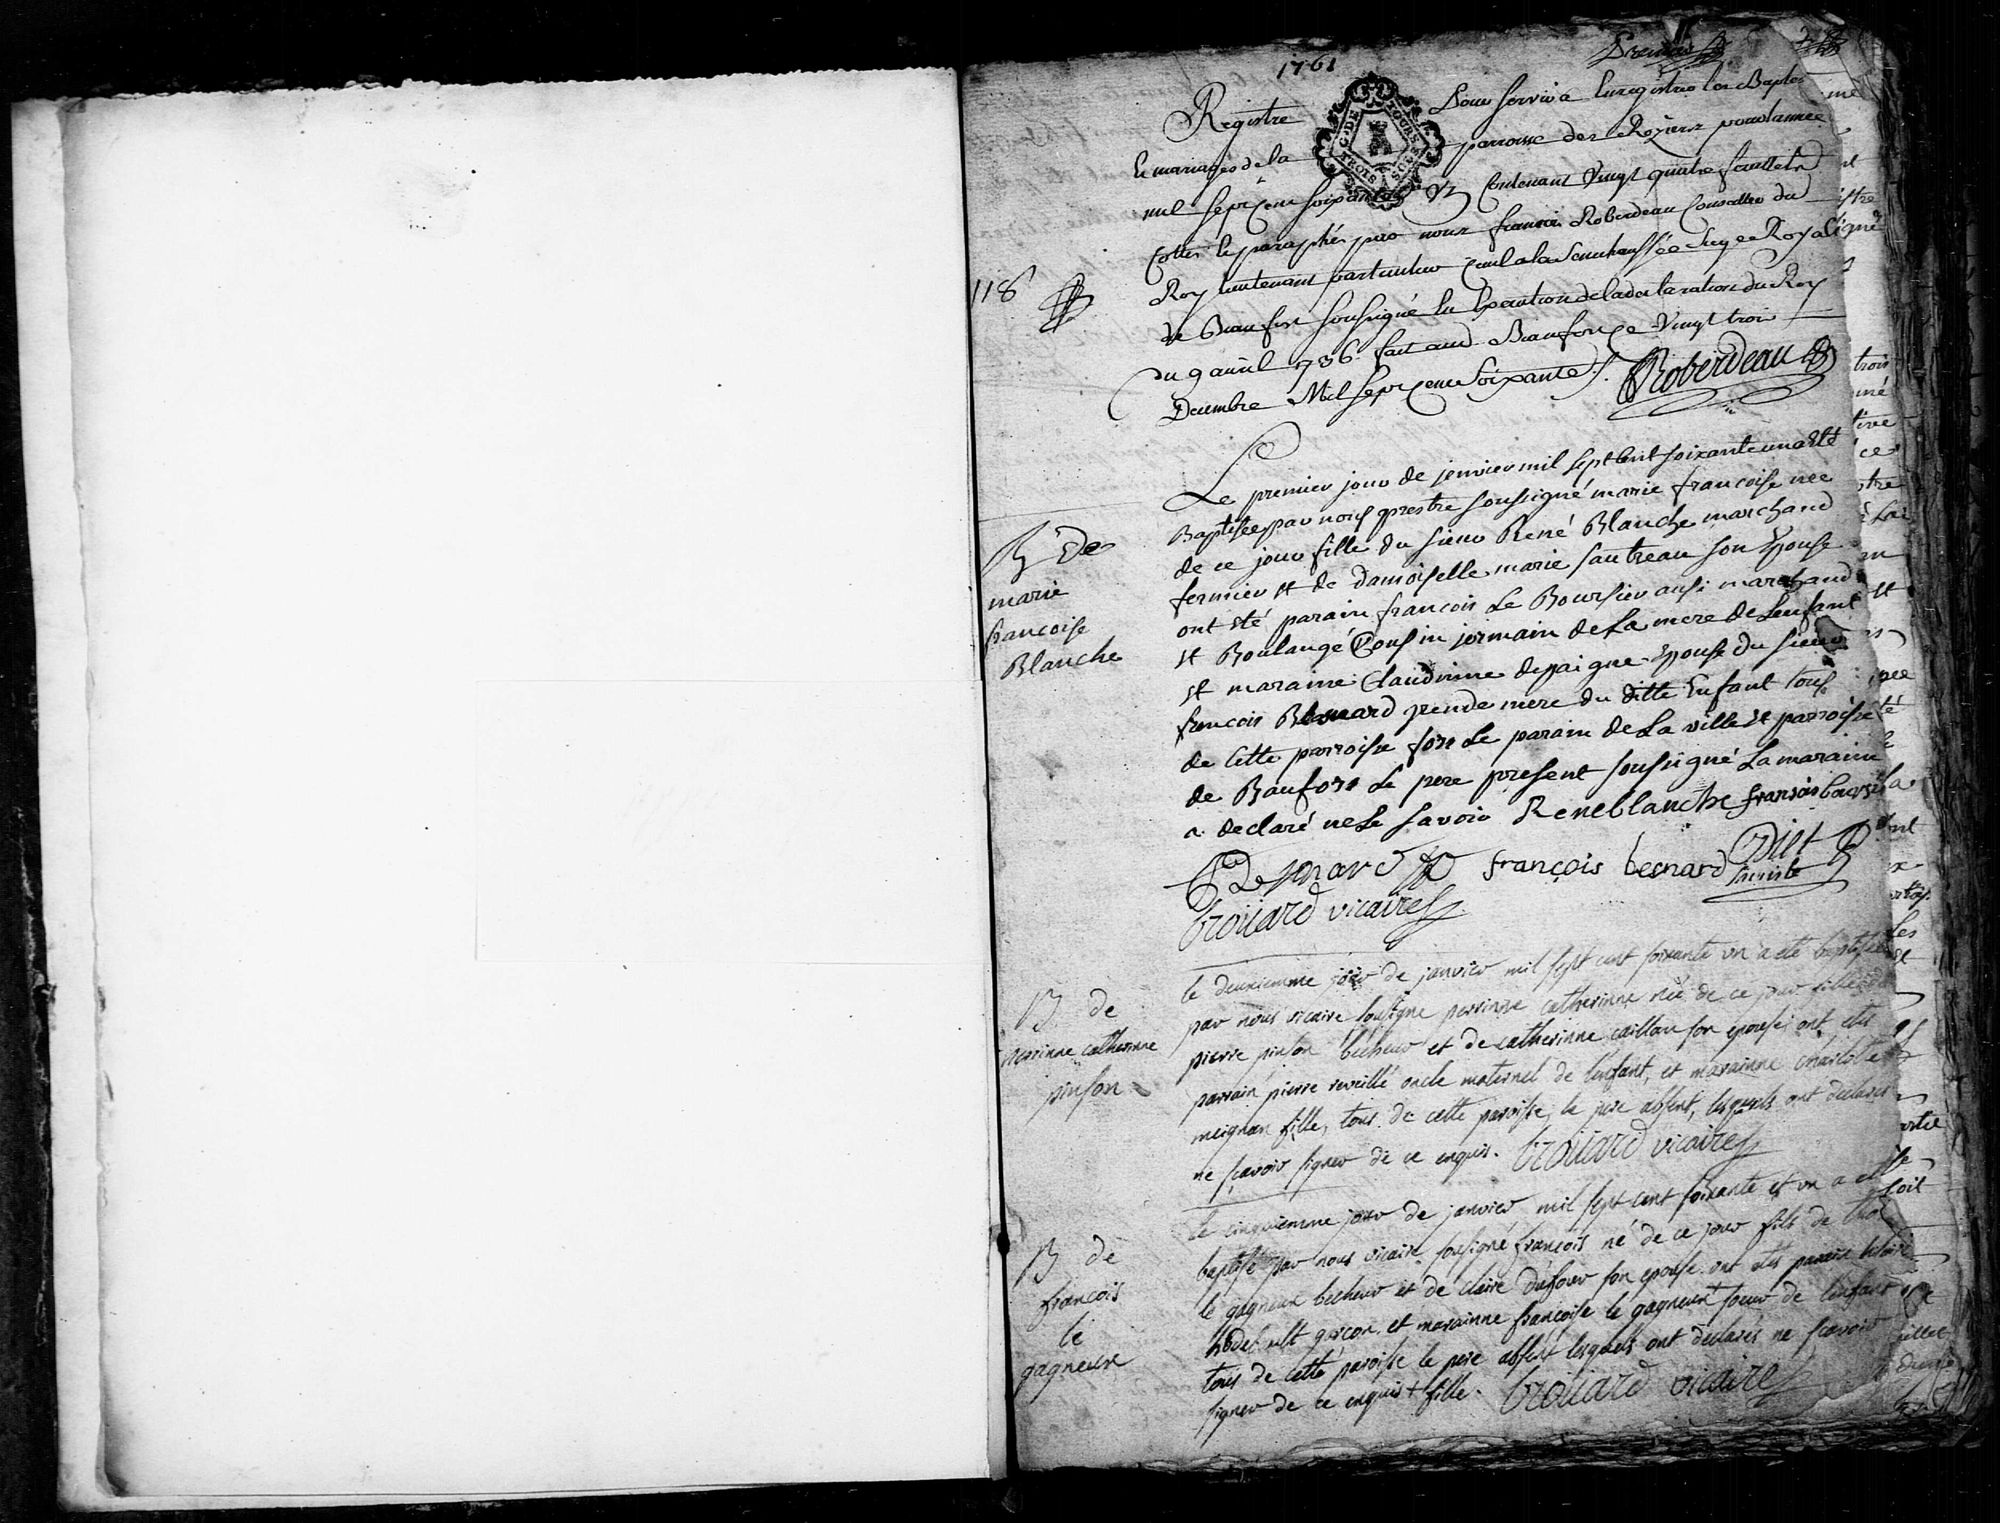 1761
Premier
Registre Pour servir a Enregistrer les Baptes
G. DE TOURS
TROIS SOLS
Et mariages de la parroisse des Roziers pour lannee
mil Sept Cent soixante Un Contenant Vingt quatre feuillets
Cottés et paraphés par nous francois Roberdeau Conseiller du
118
Roy lieutenant particulier Civil a la Senechaussée Siege Royal
de Beaufort soussigné En Execution de la declaration du Roy
du 9 avril 1736. fait aud. Beaufort ce Vingt trois
Decembre Mil Sept Cent Soixante /.
Roberdeau
Le premier jour de jenvier mil sept Cent soixante un a Eté
B De
marie
francoise
Blanche
Baptisée par nous prestre soussigné marie francoise nee
de ce jour fille du sieur René Blanche marchand
fermier et de damoiselle marie sautreau son Epouse
ont Eté parain francois Le Boursier ausi marchand
et Boulangé Cousin jermain de La mere de Lenfant
et maraine Claudinne depaigne Epouse du sieur
francois Besnard grende mere du ditte Enfant tous
de Cette parroisse fors Le parain de La ville et parroisse
de Baufort Le pere present soussigné La maraine
a declaré ne Le savoir Reneblanche fransois boursi
Besnard françois besnard
brouard vicaire
B de
perrinne catherinne
pinson
le deuxiemme jour de janvier mil sept cent soixante un a eté baptisée
par nous vicaire sousigne perrinne catherinne née de ce jour fille
pierre pinson becheur et de catherinne caillau son epouse; ont etés
parrain pierre reveillé oncle maternel de l'enfant, et marainne charlotte
meignan fille, tous de cette paroisse, le pere absent, lesquels ont déclarés
ne sçavoir signer de ce enquis. brouard vicaire
B de
françois
le
gagneux
le cinquiemme jour de janvier mil sept cent soixante et un a eté
baptisé par nous vicaire sousigné françois né de ce jour fils de
le gagneux becheur et de claire dufour son epouse. ont etés parain
garçon. et marainne françoise le gagneux + soeur de l'enfant
tous de cette paroisse le pere absent lesquels ont declarés ne scavoir
signer de ce enquis + fille. brouard vicaire